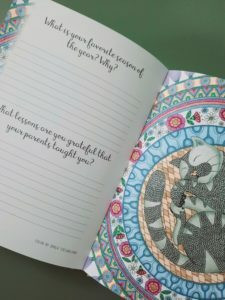 What is your favorite season of
the year? Why?
What lessons are you grateful that
your parents taught you?